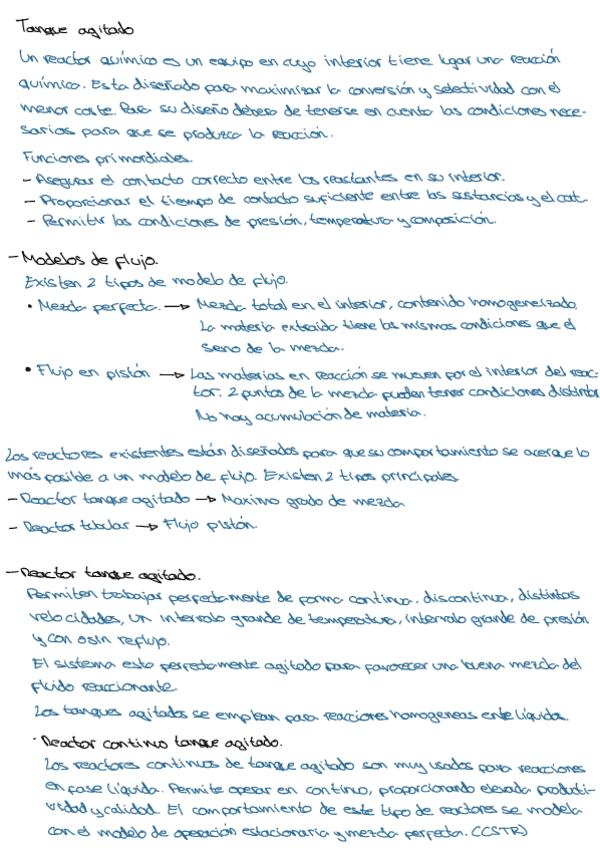 Tanque agitado
Un reactor químico es un equipo en cuyo interior tiene lugar una reacción
química. Esta diseñado para maximizar la conversión y selectividad con el
menor coste. Para su diseño debera de tenerse en cuenta las condiciones nece-
sarias para que se produzca la reacción.
Funciones primordiales.
- Asegurar el contacto correcto entre los reactantes en su interior.
- Proporcionar el tiempo de contacto suficiente entre las sustancias y el cat.
- Permitir las condiciones de presión, temperatura y composición.
- Modelos de flujo.
Existen 2 tipos de modelo de flujo.
• Mezcla perfecta. → Mezcla total en el interior, contenido homogeneizado.
La materia extraida tiene las mismas condiciones que el
seno de la mezcla.
• Flujo en pistón → Las materias en reacción se mueven por el interior del reac-
tor. 2 puntos de la mezcla pueden tener condiciones distintas
No hay acumulación de materia.
Los reactores existentes están diseñados para que su comportamiento se acerque lo
más posible a un modelo de flujo. Existen 2 tipos principales
- Reactor tanque agitado → Maximo grado de mezcla
- Reactor tubular → Flujo pistón
- Reactor tanque agitado.
Permiten trabajar perfectamente de forma continua, discontinua, distintas
velocidades, un intervalo grande de temperatura, intervalo grande de presión
y con o sin reflujo.
El sistema esta perfectamente agitado para favorecer una buena mezcla del
fluido reaccionante
Los tanques agitados se emplean para reacciones homogeneas entre líquidos.
· Reactor continuo tanque agitado.
Los reactores continuos de tanque agitado son muy usados para reacciones
en fase líquida. Permite operar en continuo, proporcionando elevada producti-
vidad y calidad. El comportamiento de este tipo de reactores se modela
con el modelo de operación estacionaria y mezcla perfecta. (CSTR)